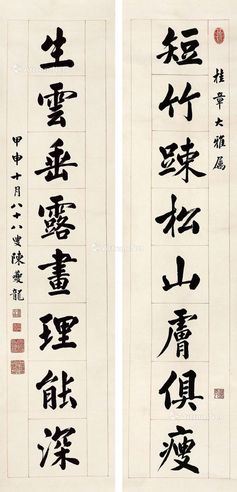 桂章大雅属
短竹踈松山膚俱瘦
生雲垂露畫理能深
甲申十月八十八叟陳夔龍